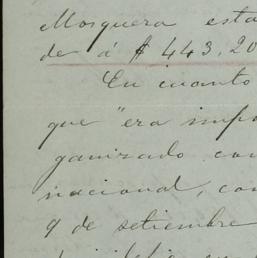 Mosquera esta
de á $ 443,20
En cuanto
que "era impo
ganizado con
nacional, con
9 de setiembre